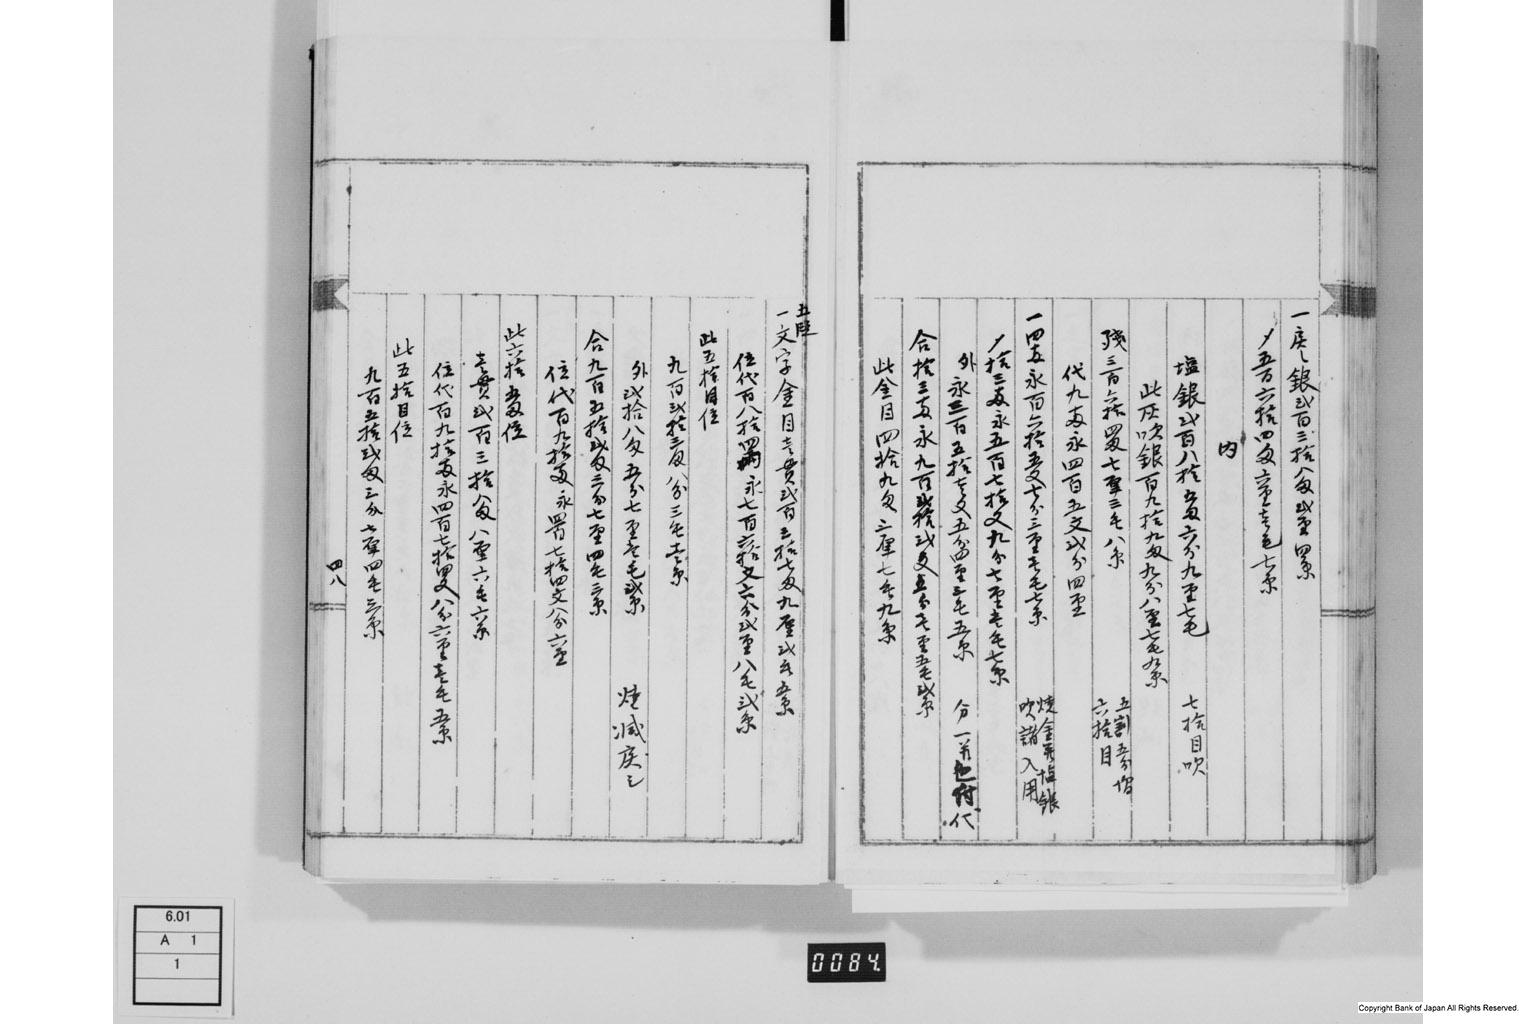 一戻し銀弐百三拾八匁弐厘四糸
〆五百六拾四匁六厘壱毛七糸
内
塩銀弐百八拾五匁六分九厘七毛 七拾目吹
此灰吹銀百九拾九匁九分八厘七毛九糸
残三百六拾四匁七厘三毛八糸 五割五分増 六拾目
代九両永四百五文弐分四厘
一四両永百六拾五文七分三厘壱毛七糸 焼金并塩銀 吹諸入用
〆拾三両永五百七拾文九分七厘壱毛七糸
外永三百五拾壱文五分四厘三毛五糸 分一并包付代
合拾三両永九百弐拾弐文五分壱厘五毛弐糸
此金目四拾九匁三厘七毛九糸
五陸
一文字金目壱貫弐百三拾七匁九厘弐毛五糸
位代百八拾四両永七百六拾文六分弐厘八毛弐糸
此五拾目位
九百弐拾三匁八分三毛壱糸
外弐拾八匁五分七厘壱毛弐糸 焼減戻シ
合九百五拾弐匁三分七厘四毛三糸
位代百九拾両永四百七拾四文八分六厘
此六拾五匁位
壱貫弐百三拾八匁八厘六毛六糸
位代百九拾両永四百七拾四文八分六厘壱毛五糸
此五拾目位
九百五拾弐匁三分七厘四毛三糸
四八
6.01
A 1
1
0084
Copyright Bank of Japan All Rights Reserved.